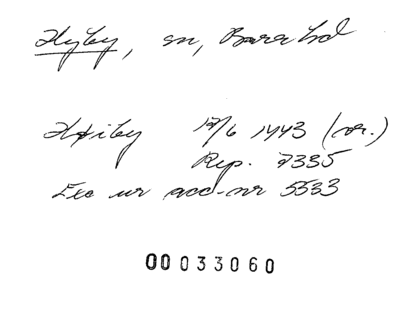 Hyby, sn, Bara hd
Hxiby 12/6 1443 (or.)
Rep. 2335
Exc ur acc-nr 5533
00033060